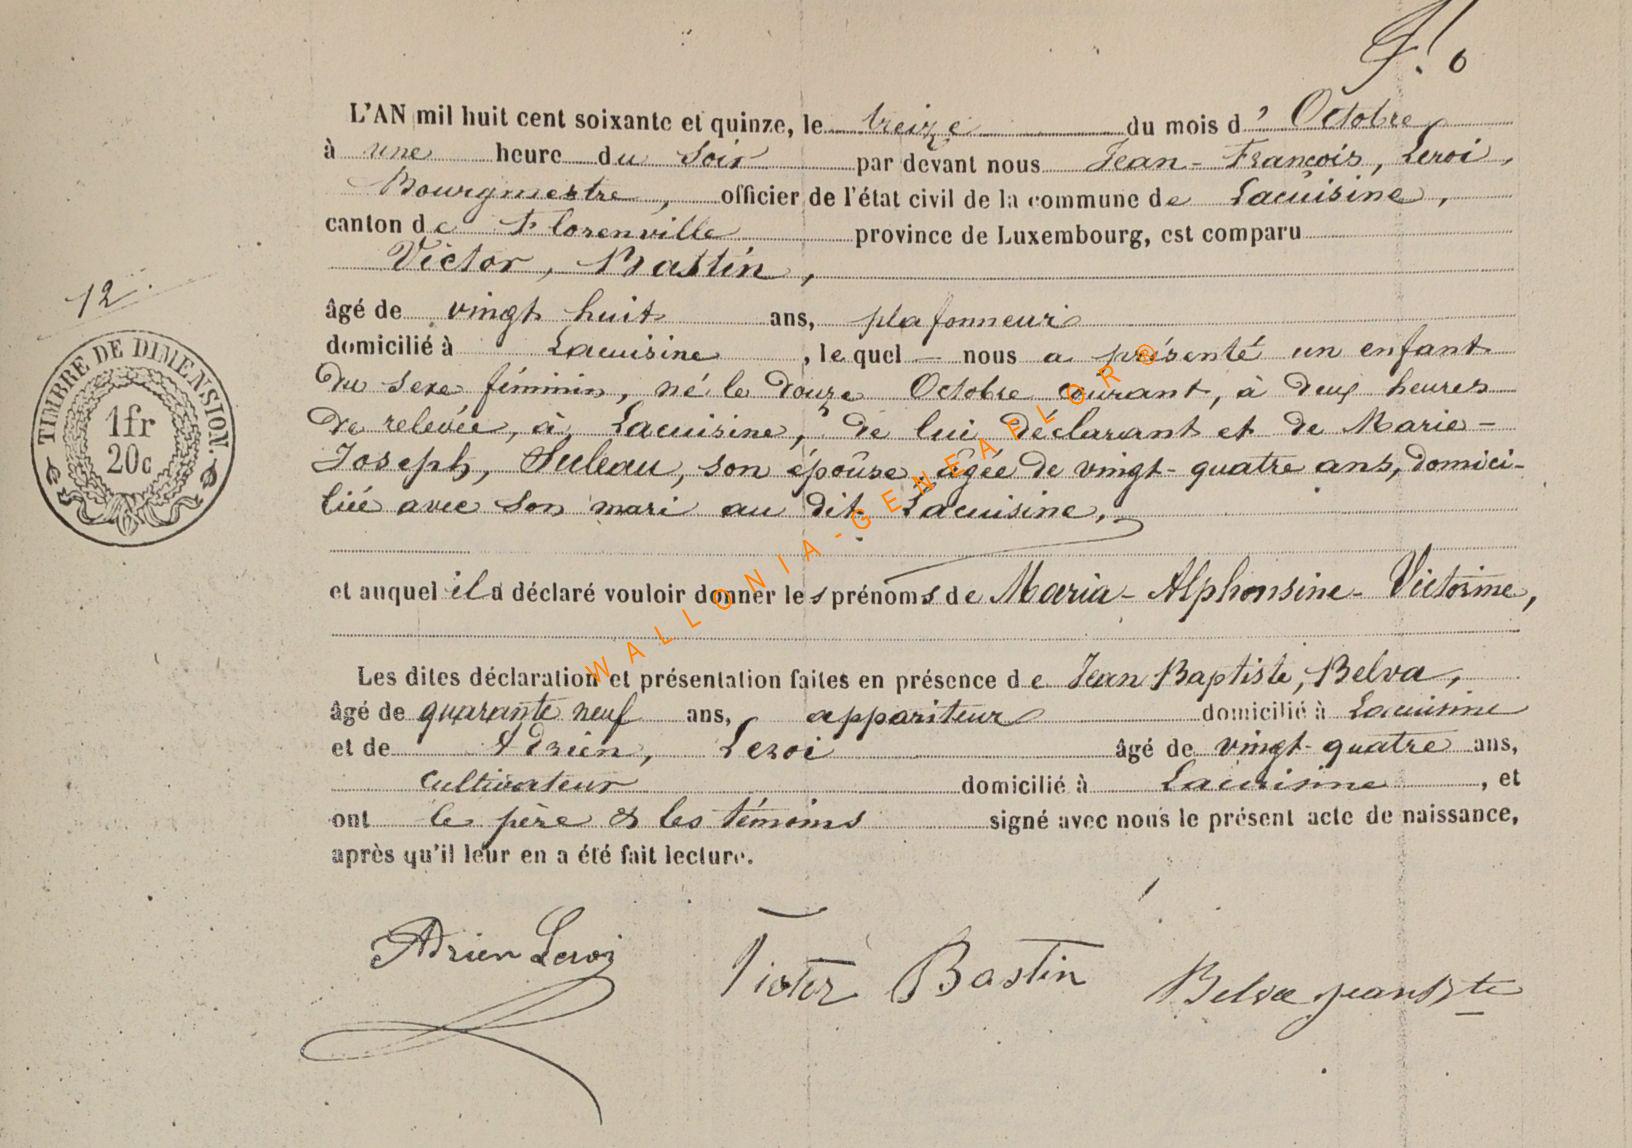 F. 6
L'AN mil huit cent soixante et quinze, le treize du mois d' Octobre
à une heure du soir par devant nous Jean-François, Leroi,
Bourgmestre, officier de l'état civil de la commune de Lacuisine,
canton de Florenville province de Luxembourg, est comparu
Victor, Bastin,
12.
âgé de vingt huit ans, plafonneur
domicilié à Lacuisine, lequel — nous a présenté un enfant
du sexe féminin, né le douze Octobre courant, à deux heures
de relevée, à Lacuisine, de lui déclarant et de Marie-
Joseph, Suleau, son épouse, âgée de vingt-quatre ans, domici-
liée avec son mari au dit Lacuisine,
et auquel il a déclaré vouloir donner les prénoms de Maria-Alphonsine-Victorine,
Les dites déclaration et présentation faites en présence de Jean Baptiste, Belva,
âgé de quarante neuf ans, appariteur domicilié à Lacuisine
et de Adrien, Leroi âgé de vingt-quatre ans,
cultivateur domicilié à Lacuisine, et
ont le père & les témoins signé avec nous le présent acte de naissance,
après qu'il leur en a été fait lecture.
Adrien Leroi Victor Bastin Belva jean Bte
TIMBRE DE DIMENSION.
1fr
20c
WALLONIA-GENEALOR®